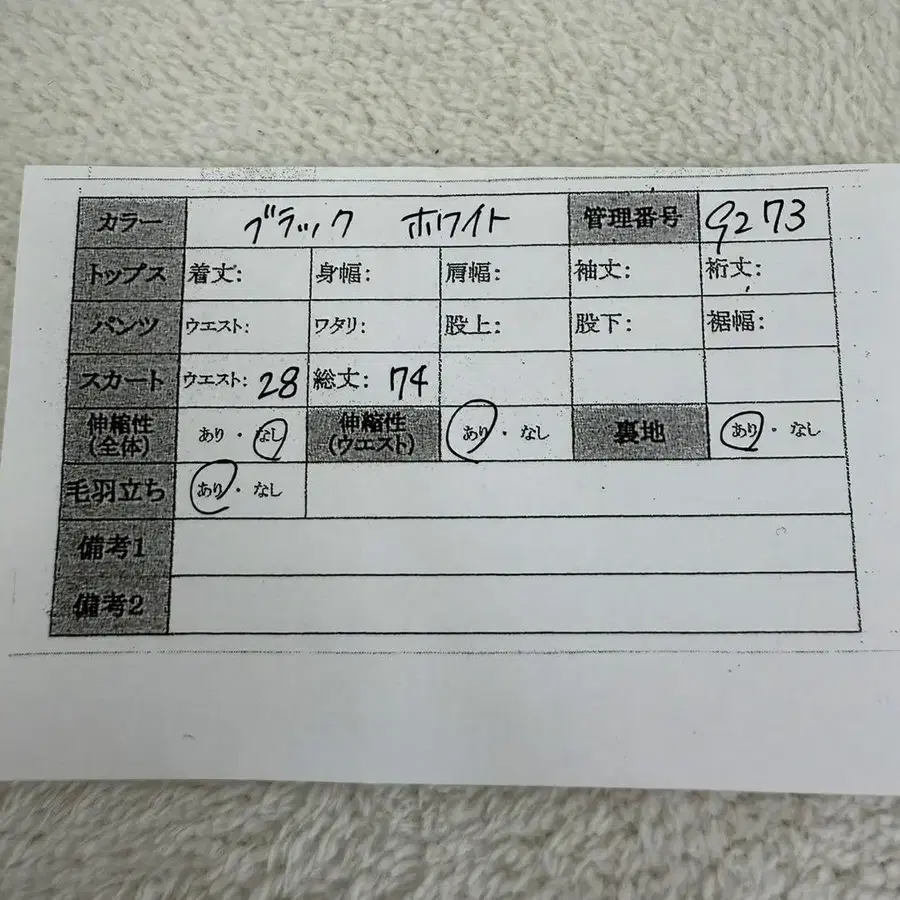 カラー ブラック ホワイト 管理番号 9273
トップス 着丈: 身幅: 肩幅: 袖丈: 裄丈:
パンツ ウエスト: ワタリ: 股上: 股下: 裾幅:
スカート ウエスト: 28 総丈: 74
伸縮性 (全体) あり ・ なし 伸縮性 (ウエスト) あり ・ なし 裏地 あり ・ なし
毛羽立ち あり ・ なし
備考1
備考2